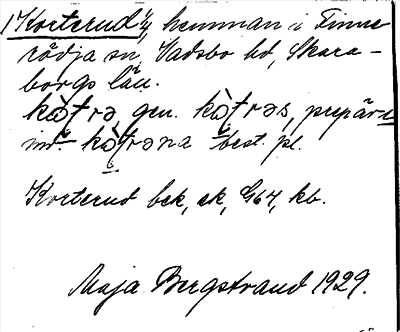 1 Korterud 1/4, hemman i Finne
rödja sn, Vadsbo hd, Skara-
borgs län.
kòtrə, gen. kòtrəs, prepär
in- kòtrəna best. pl.
Korterud bek, ek, G64, kb.
Maja Bergstrand 1929.